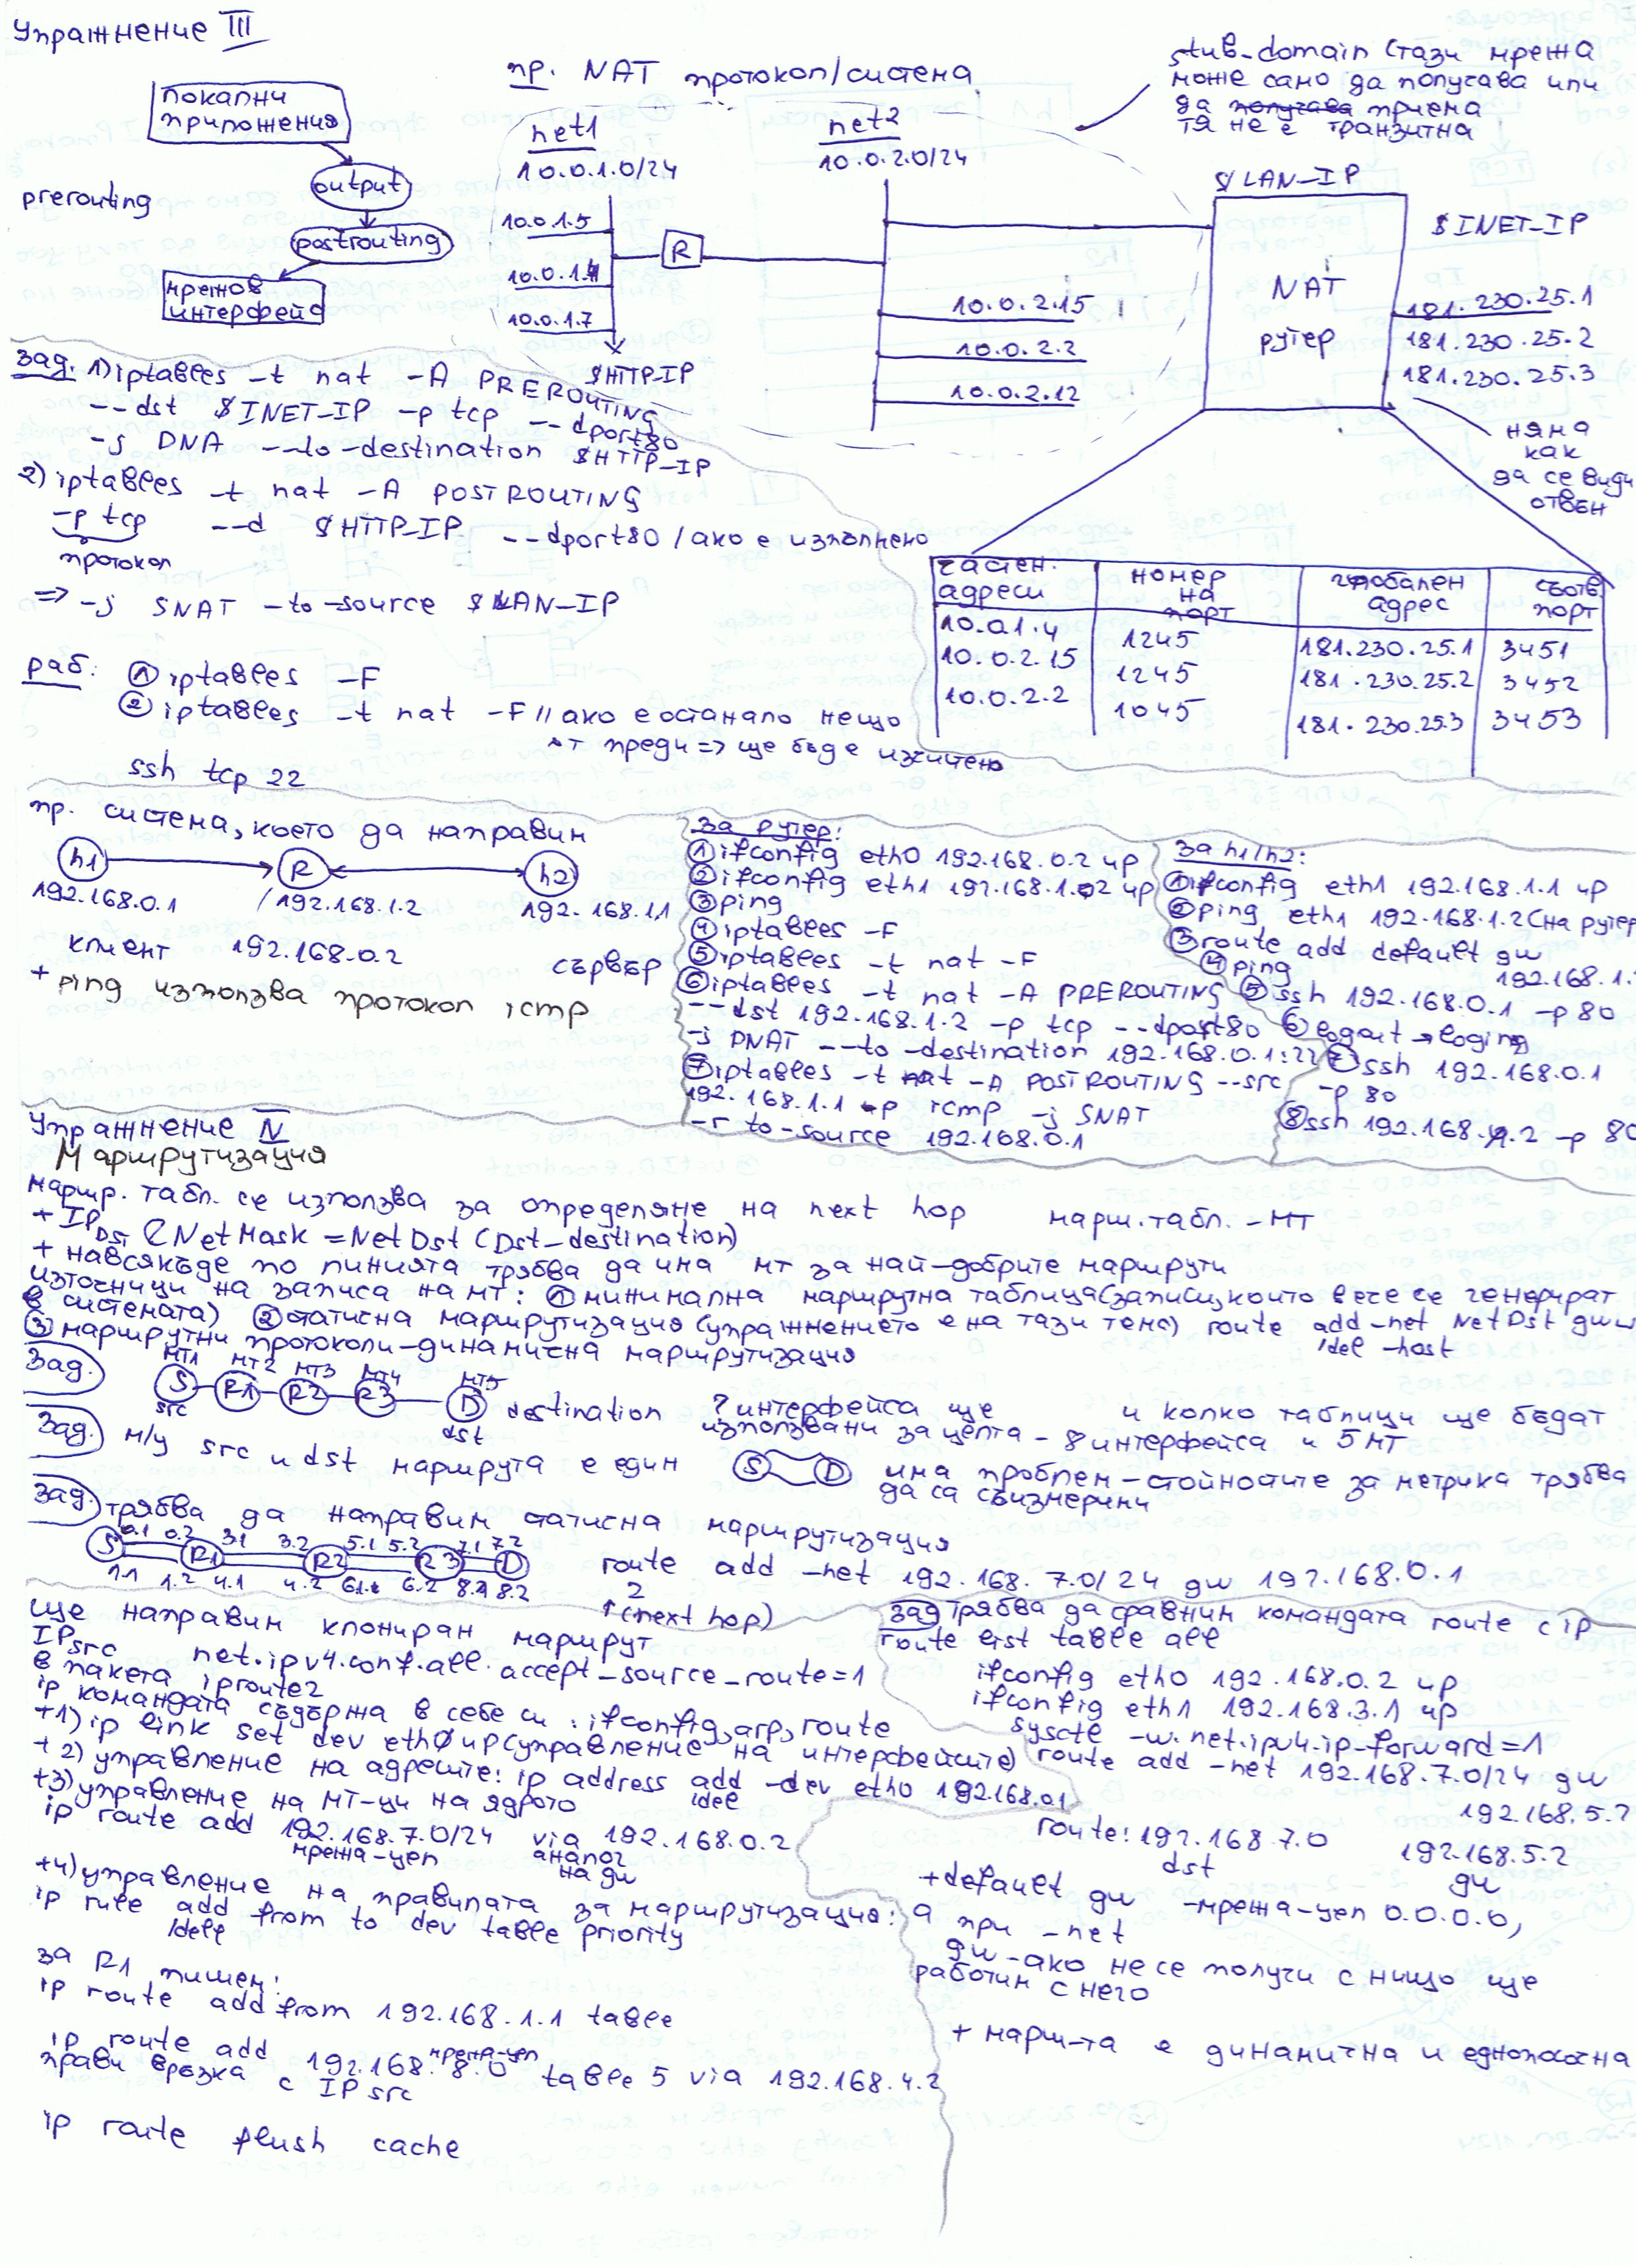 Упражнение III
локални
приложения
prerouting
output
postrouting
мрежов
интерфейс
пр. NAT протокол/система
net1
10.0.1.0/24
net2
10.0.2.0/24
10.0.1.5
10.0.1.4
10.0.1.7
R
10.0.2.15
10.0.2.2
10.0.2.12
stub_domain (тази мрежа
може само да получава или
да получава приема
тя не е транзитна
$LAN_IP
$INET_IP
NAT
рутер
181.230.25.1
181.230.25.2
181.230.25.3
няма
как
да се види
отвън
частен.
адреси
номер
на
порт
глобален
адрес
съотв.
порт
10.0.1.4 1245 181.230.25.1 3451
10.0.2.15 1245 181.230.25.2 3452
10.0.2.2 1045 181.230.25.3 3453
$HTTP_IP
зад. 1) iptables -t nat -A PREROUTING
--dst $INET_IP -p tcp --dport80
-j DNA --to-destination $HTTP_IP
2) iptables -t nat -A POSTROUTING
-p tcp --d $HTTP_IP --dport80 / ако е изпълнено
протокол
=> -j SNAT -to-source $LAN_IP
раб: ① iptables -F
② iptables -t nat -F // ако е останало нещо
от преди => ще бъде изчитено
ssh tcp 22
пр. система, което да направим
h1 R h2
192.168.0.1 / 192.168.1.2 192.168.1.1
клиент 192.168.0.2 сървър
+ ping използва протокол icmp
За рутер:
① ifconfig eth0 192.168.0.2 up
② ifconfig eth1 192.168.1.02 up
③ ping
④ iptables -F
⑤ iptables -t nat -F
⑥ iptables -t nat -A PREROUTING
--dst 192.168.1.2 -p tcp --dport80
-j DNAT --to-destination 192.168.0.1:22
⑦ iptables -t nat -A POSTROUTING --src
192.168.1.1 -p icmp -j SNAT
-r to-source 192.168.0.1
За h1/h2:
① ifconfig eth1 192.168.1.1 up
② ping eth1 192.168.1.2 (на рутер
③ route add default gw
192.168.1.
④ ping
⑤ ssh 192.168.0.1 -p 80
⑥ logaut → loging
⑦ ssh 192.168.0.1
-p 80
⑧ ssh 192.168.1.2 -p 80
Упражнение IV
Маршрутизация
маршр. табл. се използва за определяне на next hop марш.табл. - МТ
+ IPDST & NetMask = NetDst (Dst-destination)
+ навсякъде по линията трябва да има МТ за най-добрите маршрути
източници на записа на МТ: ① минимална маршрутна таблица (записи, които вече се генерират
в системата) ② статисна маршрутизация (упражнението е на тази тема) route add-net NetDst gw
/del -host
③ маршрутни протоколи-динамисна маршрутизация
Зад.
МТ1 МТ2 МТ3 МТ4 МТ5
S R1 R2 R3 D destination
src dst
? интерфейса ще и колко таблици ще бъдат
използвани за целта - 8 интерфейса и 5 МТ
Зад. м/у src и dst маршрута е един
S D има проблем - стойностите за метрика трябва
да са съизмерими
Зад. трябва да направим статисна маршрутизация
0.1 0.2 3.1 3.2 5.1 5.2 7.1 7.2
S R1 R2 R3 D
1.1 1.2 4.1 4.2 6.1 6.2 8.1 8.2
route add -net 192.168.7.0/24 gw 192.168.0.1
2
↑(next hop)
ще направим клониран маршрут
IPsrc net.ipv4.conf.all.accept_source_route=1
в пакета iproute2
ip командата съдържа в себе си: ifconfig, arp, route
+1) ip link set dev eth0 up (управление на интерфейсите)
+2) управление на адресите: ip address add -dev eth0 192.168.0.1
/del
+3) управление на МТ-ци на ядрото
ip route add 192.168.7.0/24 via 192.168.0.2
мрежа-цел аналог
на gw
+4) управление на правилата за маршрутизация:
ip rule add from to dev table priority
/dell
за R1 пишем:
ip route add from 192.168.1.1 table
ip route add 192.168.8.0 table 5 via 192.168.4.2
мрежа-цел
прави връзка с IPsrc
ip route flush cache
Зад трябва да сравним командата route с ip
route list table all
ifconfig eth0 192.168.0.2 up
ifconfig eth1 192.168.3.1 up
syscte -w.net.ipv4.ip-forward=1
route add -net 192.168.7.0/24 gw
192.168.5.2
route: 192.168.7.0 192.168.5.2
dst gw
+ default gw -мрежа-цел 0.0.0.0,
а при -net
gw - ако не се получи с нищо ще
работим с него
+ марш-та е динамитна и еднопосочна